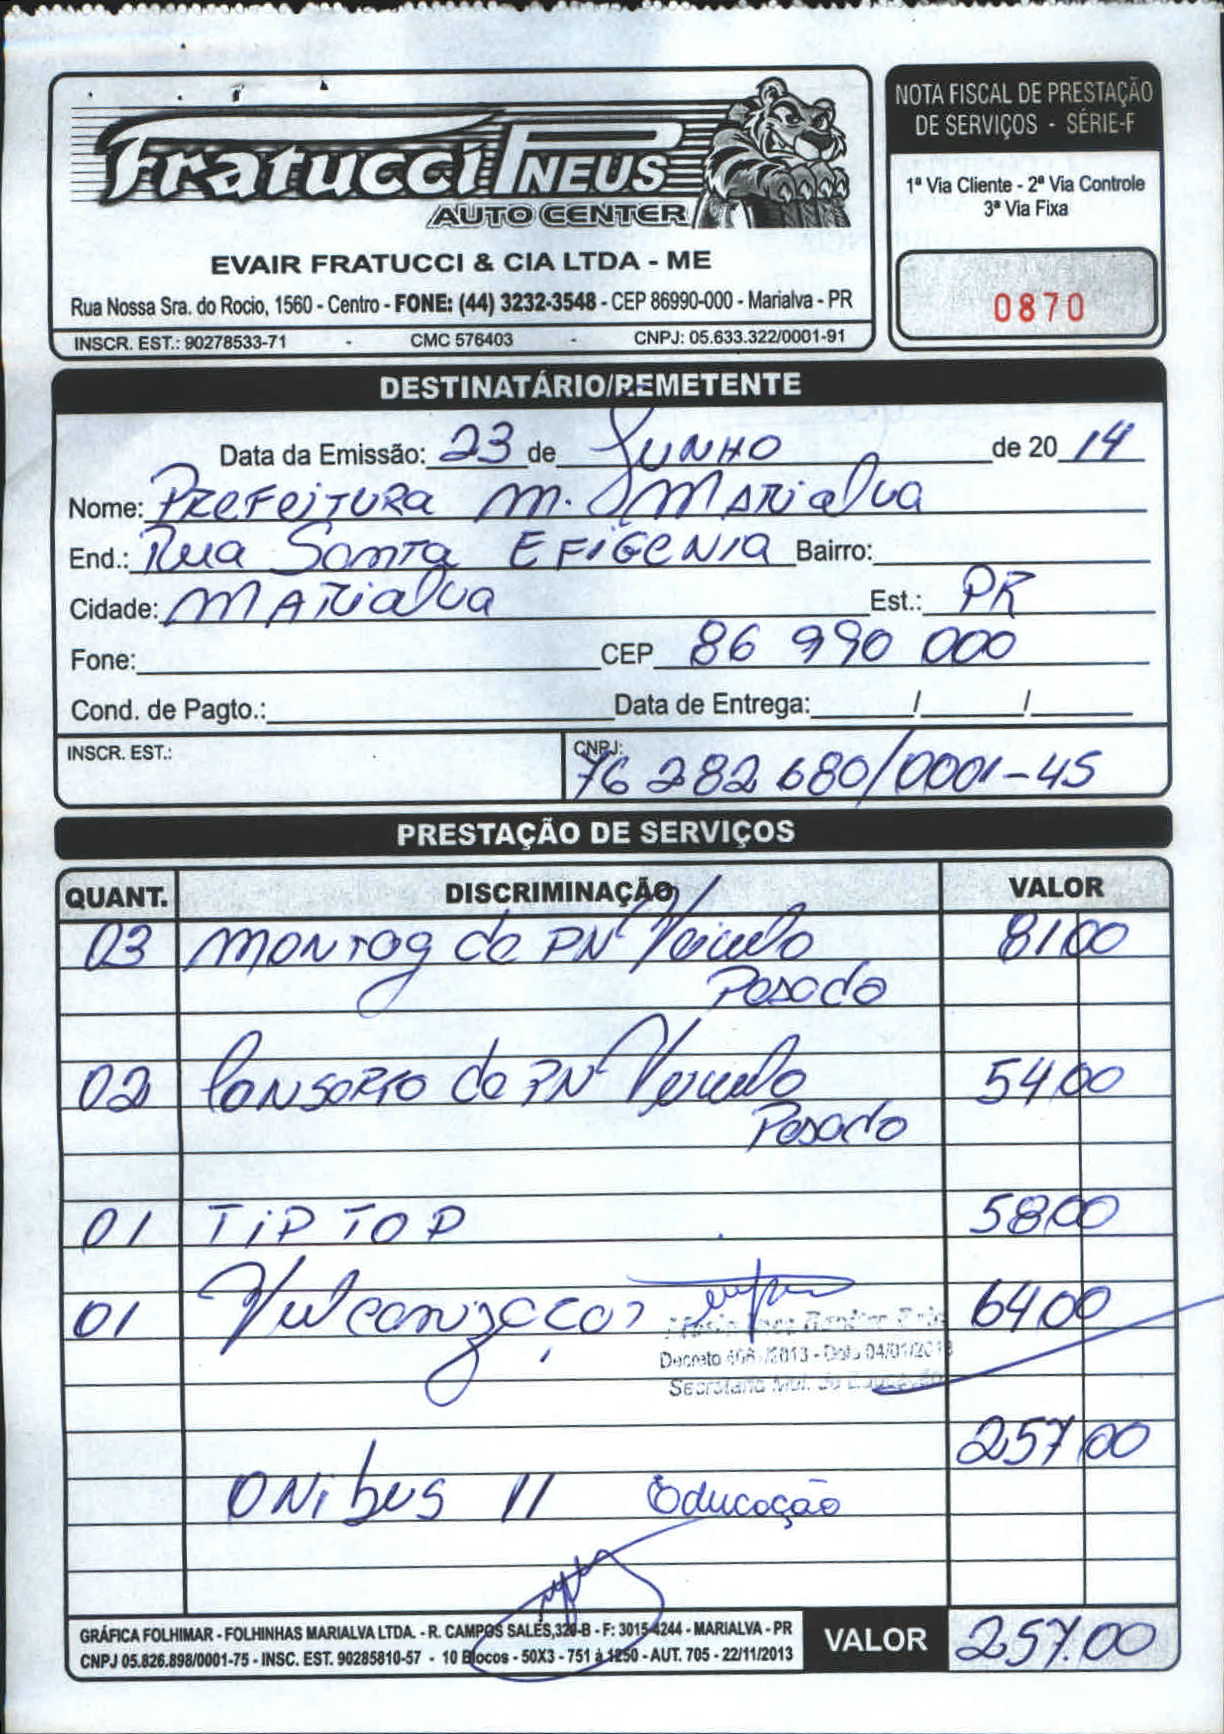 Fratucci PNEUS
AUTO CENTER
EVAIR FRATUCCI & CIA LTDA - ME
Rua Nossa Sra. do Rocio, 1560 - Centro - FONE: (44) 3232-3548 - CEP 86990-000 - Marialva - PR
INSCR. EST.: 90278533-71 - CMC 576403 - CNPJ: 05.633.322/0001-91
NOTA FISCAL DE PRESTAÇÃO
DE SERVIÇOS - SÉRIE-F
1ª Via Cliente - 2ª Via Controle
3ª Via Fixa
0870
DESTINATÁRIO/REMETENTE
Data da Emissão: 23 de JUNHO de 20 14
Nome: PREFEITURA M. MARIALVA
End.: Rua Santa EFIGENIA Bairro:
Cidade: MARIALVA Est.: PR
Fone: CEP 86 990 000
Cond. de Pagto.: Data de Entrega: / /
INSCR. EST.: CNPJ: 76 282 680/0001-45
PRESTAÇÃO DE SERVIÇOS
QUANT. DISCRIMINAÇÃO VALOR
03 MONTAG de PN Veiculo 81,00
Pesado
02 CONSERTO de PN Veiculo 54,00
Pesado
01 TIP TOP 58,00
01 Vulcanização 64,00
Decreto /2013 - Data 04/01/2013
257,00
ONibus 11 Educação
GRÁFICA FOLHIMAR - FOLHINHAS MARIALVA LTDA. - R. CAMPOS SALES, 320-B - F: 3015-4244 - MARIALVA - PR
CNPJ 05.826.898/0001-75 - INSC. EST. 90285810-57 - 10 Blocos - 50X3 - 751 à 1250 - AUT. 705 - 22/11/2013
VALOR 257,00